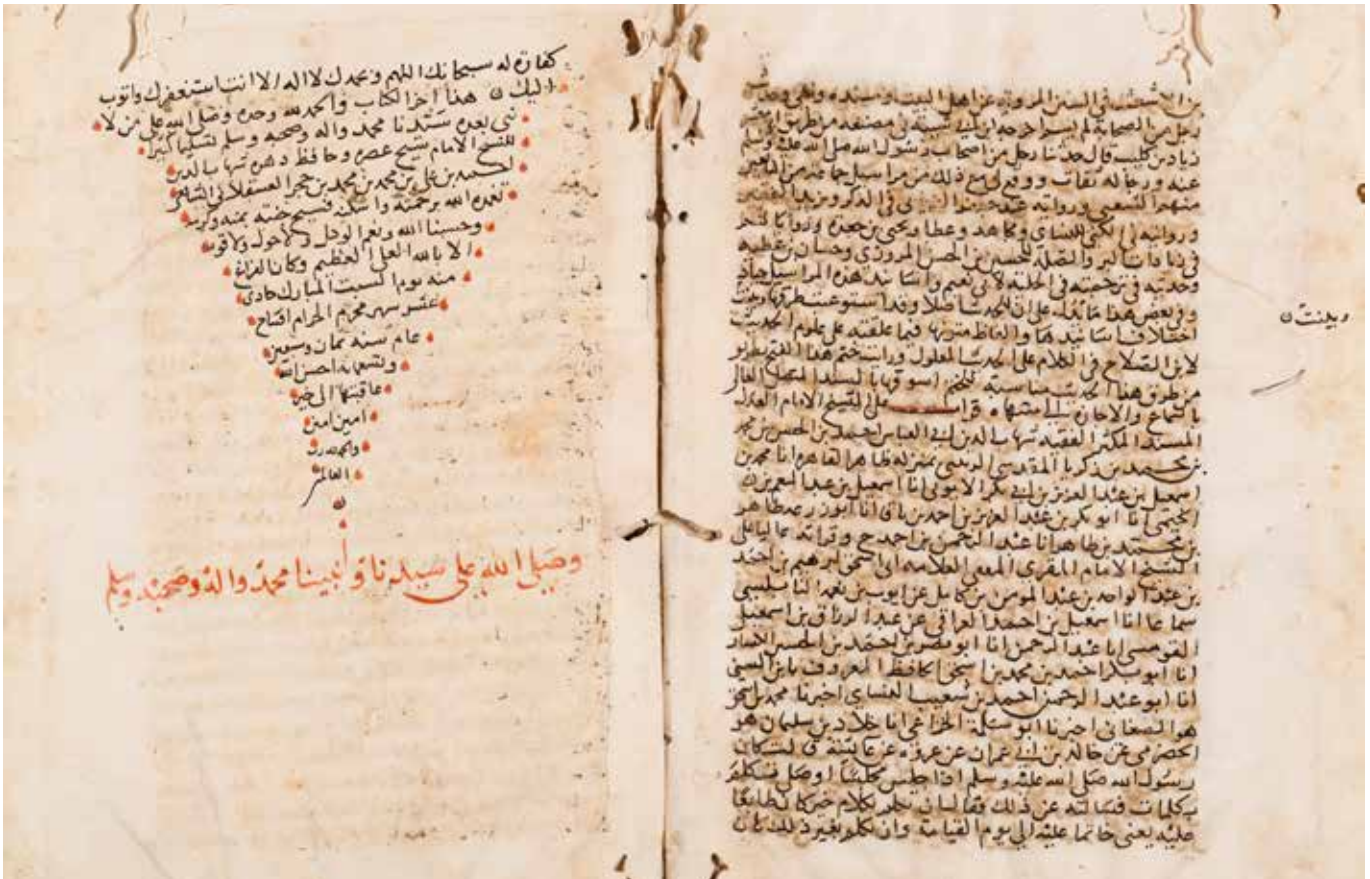 بن الاشعث في السنن المروية عن اهل البيت ومسنده وعلى وحديث
رجل من الصحابة لم يسم اخرجه ابن ابي شيبة في مصنفه من طريق ابي معشر
زياد بن كليب قال حدثنا رجل من اصحاب رسول الله صلى الله عليه وسلم
عنه ورجاله ثقات ووقع لي مع ذلك من مراسيل جماعة من التابعين
منهم الشعبي وروايته عند جعفر الفريابي في الذكر ويزيد الفقير
وروايته في الكنى للنسائي ومجاهد وعطا ويحيى بن جعدة ورواياتهم
في زيادات البر والصلة للحسين بن الحسن المروزي وحسان بن عطية
وحديثه في ترجمته في الحلية لابي نعيم واسانيد هذه المراسيل جياد
وفي بعض هذا ما يدل على ان للحديث اصلا وقد استوعبت طرقها وبينت
اختلاف اسانيدها والفاظ متونها فيما علقته على علوم الحديث
لابن الصلاح في الكلام على الحديث المعلول ورايت ختم هذا الفتح بطريق
من طرق هذا الحديث مناسبة للختم اسوقها بالسند المتصل العالي
بالسماع والاجازة الى منتهاه قرات على الشيخ الامام العدل
المسند المكثر الفقيه شهاب الدين ابي العباس احمد بن الحسن بن محمد
بن محمد بن زكريا المقدسي الزينبي بمنزله ظاهر القاهرة انا محمد بن
اسمعيل بن عبد العزيز بن ابي بكر الايوبي انا اسمعيل بن عبد المنعم بن
الخيمي انا ابو بكر بن عبد العزيز بن احمد بن باقا انا ابو زرعة طاهر
بن محمد بن طاهر انا عبد الرحمن بن احمد ح وقراته عاليا على
الشيخ الامام المقري المفتي العلامة ابي اسحق ابرهيم بن احمد
بن عبد الواحد بن عبد المومن بن كامل عن ايوب بن نعمة النابلسي
سماعا انا اسمعيل بن احمد العراقي عن عبد الرزاق بن اسمعيل
القومسي انا عبد الرحمن انا ابو نصر احمد بن الحسين الكسار
انا ابو بكر احمد بن محمد بن اسحق الحافظ المعروف بابن السني
انا ابو عبد الرحمن احمد بن شعيب النسائي اخبرنا محمد بن اسحق
هو الصغاني اخبرنا ابو سلمة الخزاعي انا خلاد بن سليمان هو
الحضرمي عن خالد بن ابي عمران عن عروة عن عايشة قالت كان
رسول الله صلى الله عليه وسلم اذا جلس مجلسا او صلى تكلم
بكلمات فسالته عن ذلك فقال ان تكلم بكلام خير كان طابعا
عليه يعني خاتما عليه الى يوم القيامة وان تكلم بغير ذلك كان
وبينت
كفارة له سبحانك اللهم وبحمدك لا اله الا انت استغفرك واتوب
اليك هذا اخر الكتاب والحمد لله وحده وصلى الله على من لا
نبي بعده سيدنا محمد واله وصحبه وسلم تسليما كثيرا
للشيخ الامام شيخ عصره وحافظ دهره شهاب الدين
احمد بن علي بن محمد بن محمد بن حجر العسقلاني الشافعي
تغمده الله برحمته واسكنه فسيح جنته بمنه وكرمه
وحسبنا الله ونعم الوكيل ولا حول ولا قوة
الا بالله العلي العظيم وكان الفراغ
منه يوم السبت المبارك حادي
عشر شهر محرم الحرام افتتاح
عام سنة ثمان وسبعين
وتسعماية احسن الله
عاقبتها الى خير
امين امين
والحمد لله رب
العالمين
ن
وصلى الله على سيدنا ونبينا محمد واله وصحبه وسلم